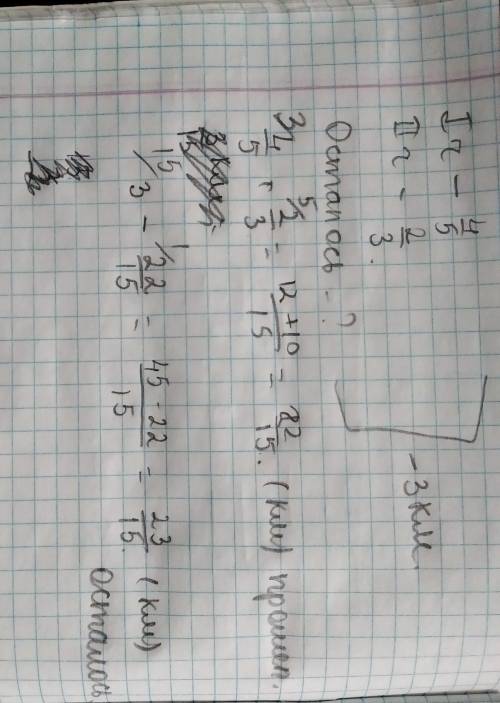 I ч - 4/5
II ч - 2/3.
- 3 км
Осталось - ?
3/ 4/5 + 5/ 2/3 = 12+10/15 = 22/15. (км) прошл.
15/ 3 - 1/ 22/15 = 45-22/15 = 23/15. (км)
осталось